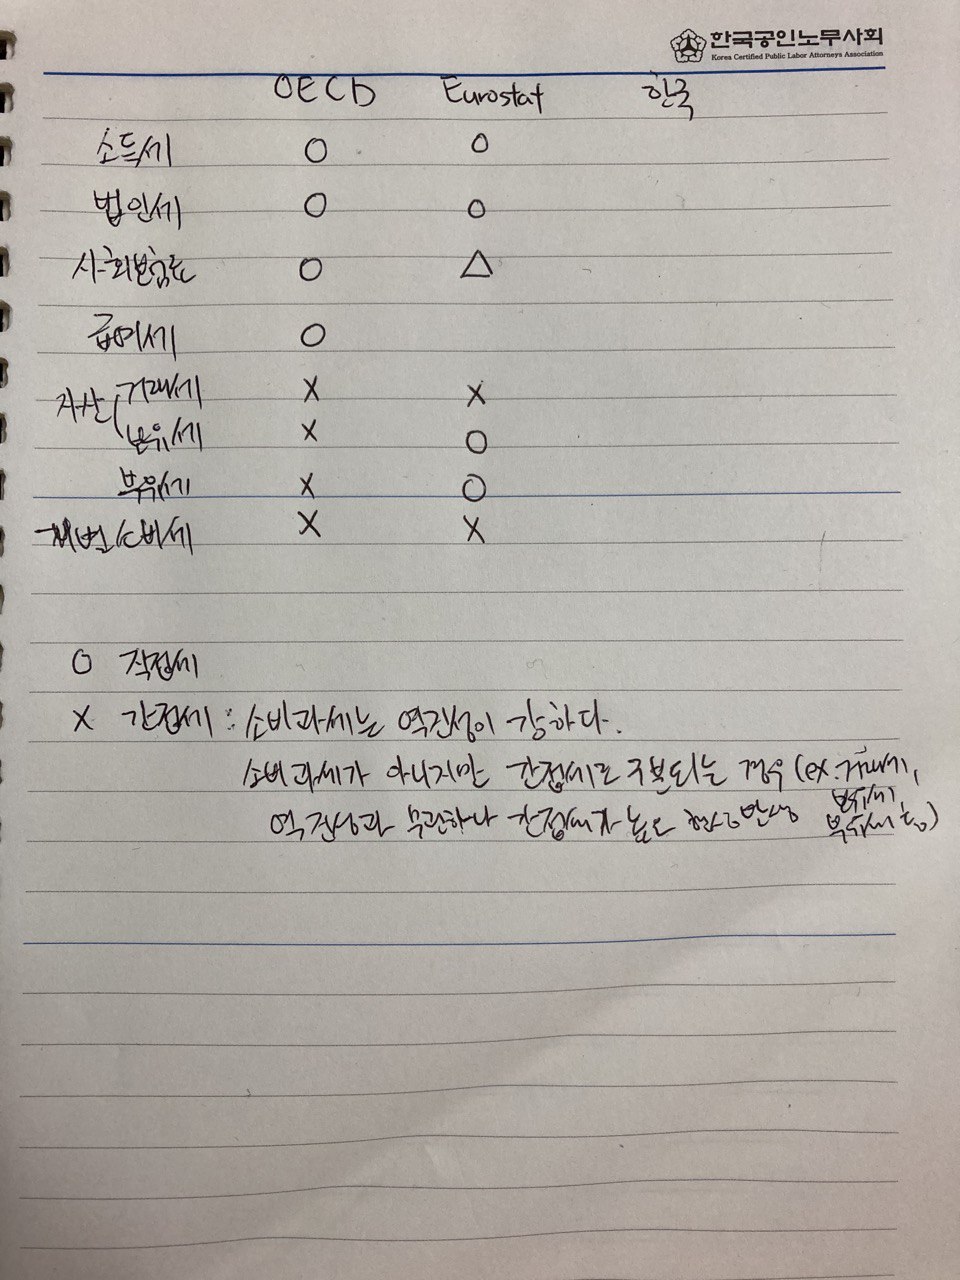 한국공인노무사회
Korea Certified Public Labor Attorneys Association
OECD Eurostat 한국
소득세 O O
법인세 O O
사회보험료 O △
급여세 O
자산 ( 거래세 X X
보유세 X O
부유세 X O
개별소비세 X X
O 직접세
X 간접세 : 소비과세는 역진성이 강하다.
소비과세가 아니지만 간접세로 구분되는 경우 (ex. 거래세,
보유세,
역진성과 무관하나 간접세가 높은 현상 부유세 등)